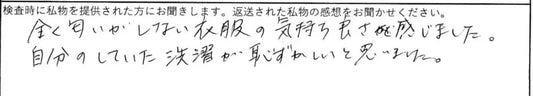 検査時に私物を提供された方にお聞きします。返送された私物の感想をお聞かせください。
全く匂いがしない衣服の気持ち良さを感じました。
自分のしていた洗濯が恥ずかしいと思いました。